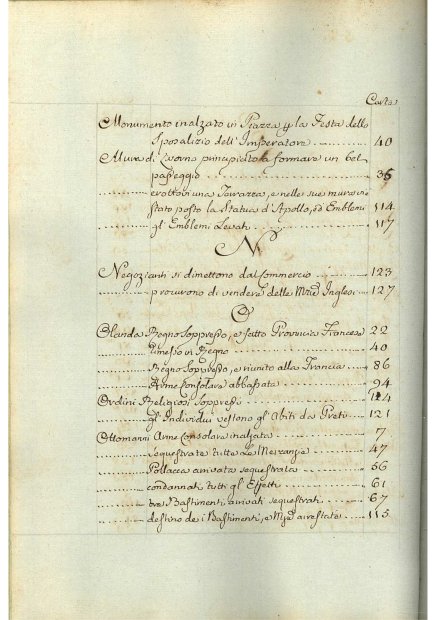 Carta
Monumento inalzato in Piazza p la Festa dello
Sposalizio dell' Imperatore 40
Mura di Livorno principiato a formare un bel
passeggio 36
erottovi una Torrazza, e nelle sue mura vi
stato posto la Statua d'Apollo, ed Emblemi 114
gli Emblemi Levati 117
N
Negozianti si dimettono dal Commercio 123
procurono di vendere delle Inglesi 127
O
Olanda Regno Soppresso, e fatto Provincia Francese 22
rimesso in Regno 40
Regno Soppresso, e riunito alla Francia 86
Arme Consolare abbassata 94
Ordini Religiosi Soppressi 114
gli Individui vestono gli Abiti da Preti 121
Ottomanni Arme Consolare inalzata 7
sequestrate tutte le Mercanzie 47
Pollacca arrivata sequestrata 56
condannati tutti gl'Effetti 61
tre Bastimenti arrivati sequestrati 67
destino de i Bastimenti, e arrestate 115